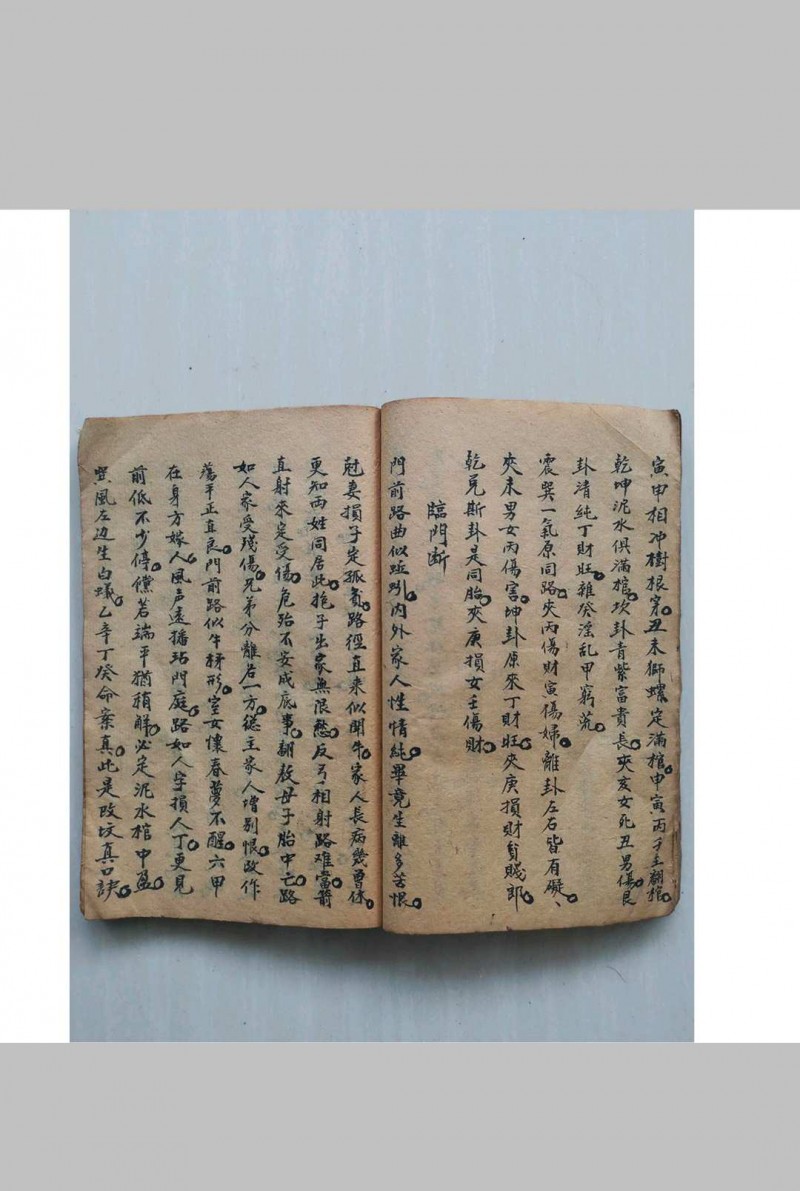 寅申相冲樹根穿丑未獅螺定滿棺申寅丙子主翻棺
乾坤泥水俱滿棺坎卦青紫富貴長夾亥女死丑男傷艮
卦清純丁財旺雜癸淫乱甲窮荒
震巽一氣原同路夾丙傷財寅傷婦離卦左右皆有礙
夾未男女丙傷害坤卦原來丁財旺夾庚損財貧賤郎
乾兑斯卦是同胎夾庚損女壬傷財
臨門断
門前路曲似蚯蚓内外家人性情純畢竟生離多苦恨
尅妻損子定孤貧路徑直来似開牛家人長病幾曾休
更知両姓同居此抱子出家無限愁反弓相射路难當箭
直射來定受傷危殆不安成底事翻教母子胎中亡路
如人家受殘傷兄弟分離各一方縂主家人增别恨改作
蕩平正直良門前路似牛梯形室女懷春夢不醒六甲
在身方嫁人風声遠播玷門庭路如人字損人丁更見
前低不少停儻若端平猶稍解必定泥水棺中盈
巽風左边生白蟻乙辛丁癸命案真此是改坟真口訣